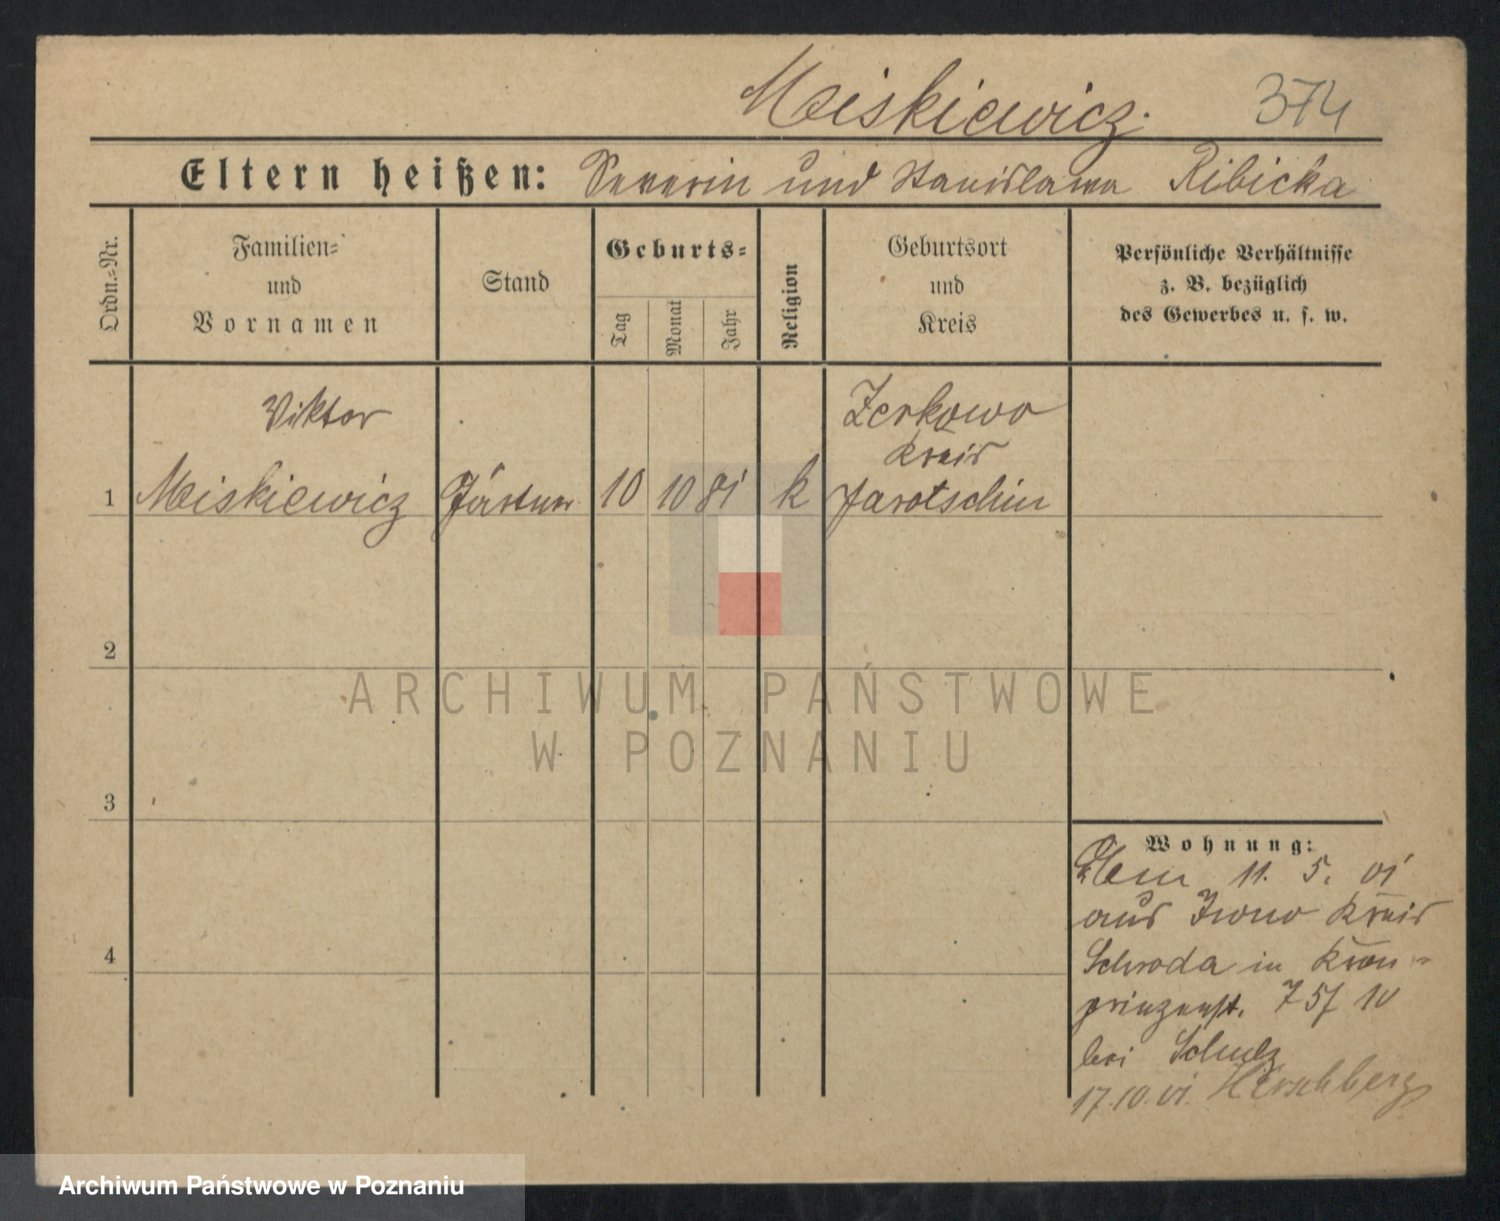 Meiskiewicz. 374
Eltern heißen: Severin und Stanislawa Ribicka
Ordn.-Nr.
Familien-
und
Vornamen
Stand
Geburts-
Tag
Monat
Jahr
Religion
Geburtsort
und
Kreis
Persönliche Verhältnisse
z. B. bezüglich
des Gewerbes u. s. w.
Viktor
1 Meiskiewicz Gärtner 10 10 81 k
Zerkowo
Kreis
Jarotschin
2
3
4
ARCHIWUM PAŃSTWOWE
W POZNANIU
Wohnung:
11. 5. 01
aus Kreis
Schroda in Kron-
prinzenst. 75/ 10
bei Schulz
17.10.01. Hirschberg
Archiwum Państwowe w Poznaniu